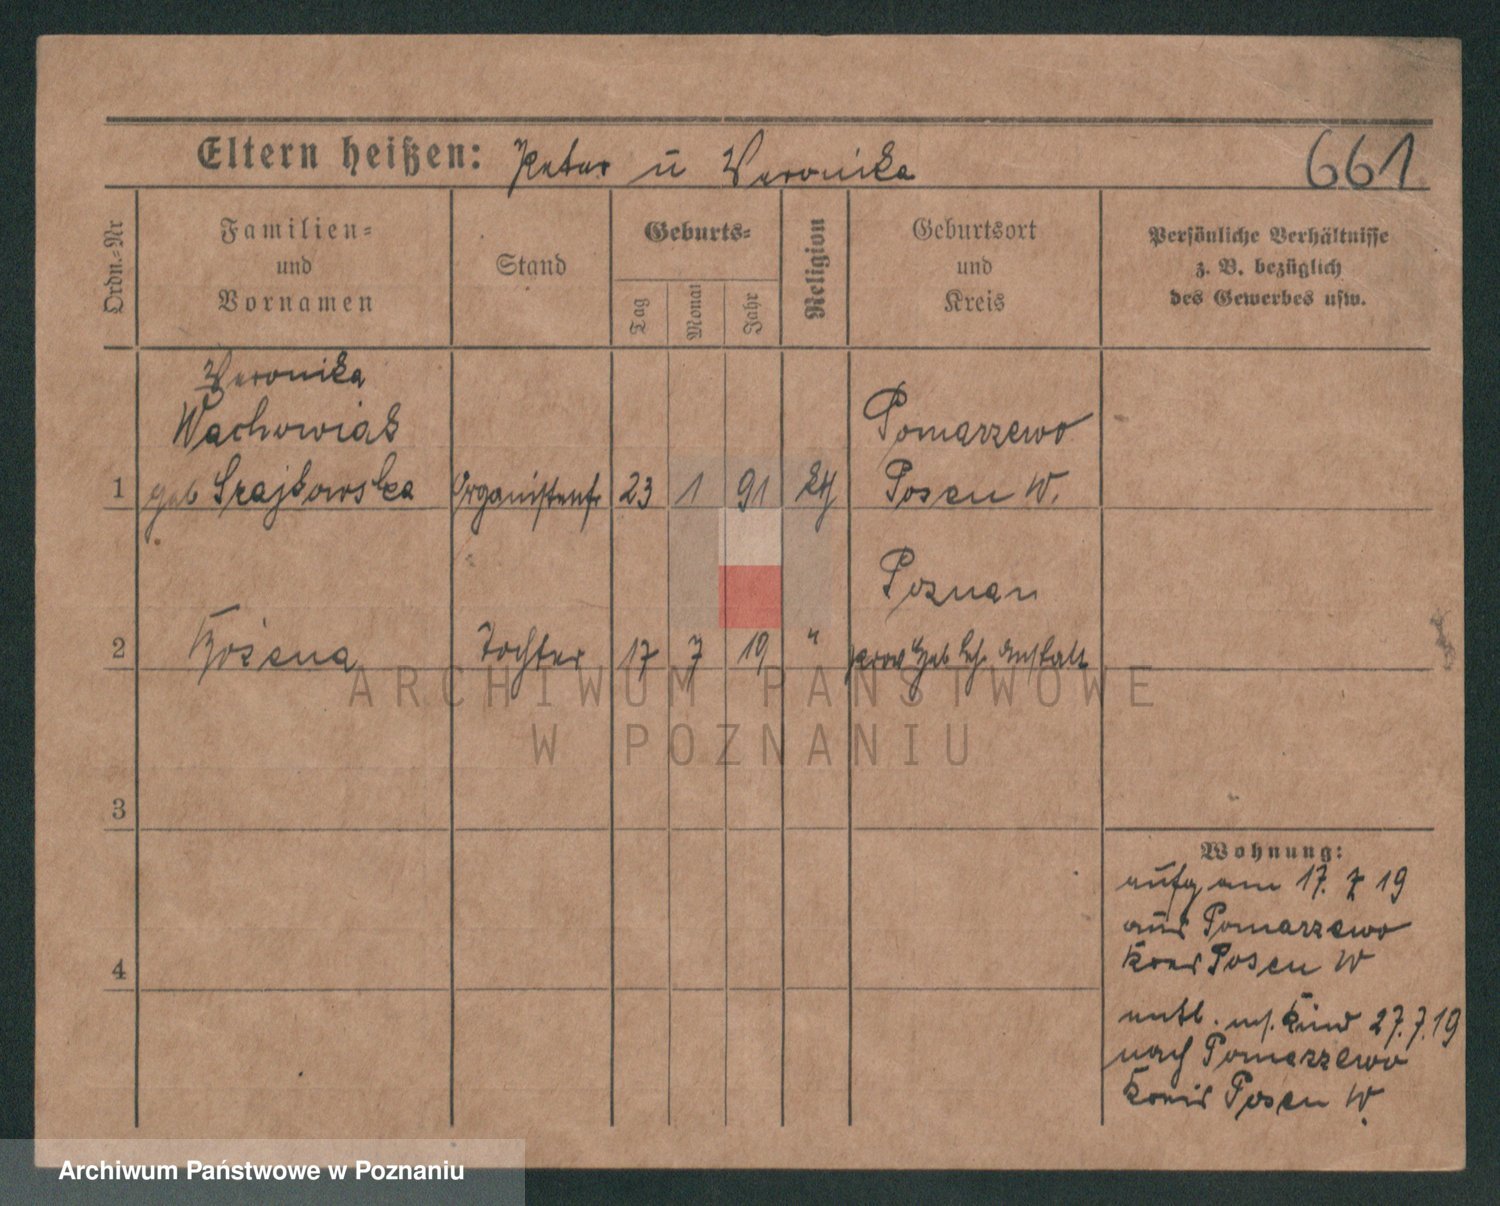 Eltern heißen: Peter u Veronika 661
Ordn.-Nr
Familien-
und
Vornamen
Stand
Geburts-
Tag
Monat
Jahr
Religion
Geburtsort
und
Kreis
Persönliche Verhältnisse
z. B. bezüglich
des Gewerbes usw.
Veronika
Wachowiak
Pomarzewo
1 geb Szajkowska Organistenfr 23 1 91 kth Posen W.
Poznan
2 Bożena Tochter 17 7 19 " prov Heb Lehr Anstalt
ARCHIWUM PAŃSTWOWE
W POZNANIU
3
Wohnung:
aufg am 17. 7 19
aus Pomarzewo
Kreis Posen W
4
entl. m. Kind 27.7.19
nach Pomarzewo
Kreis Posen W.
Archiwum Państwowe w Poznaniu